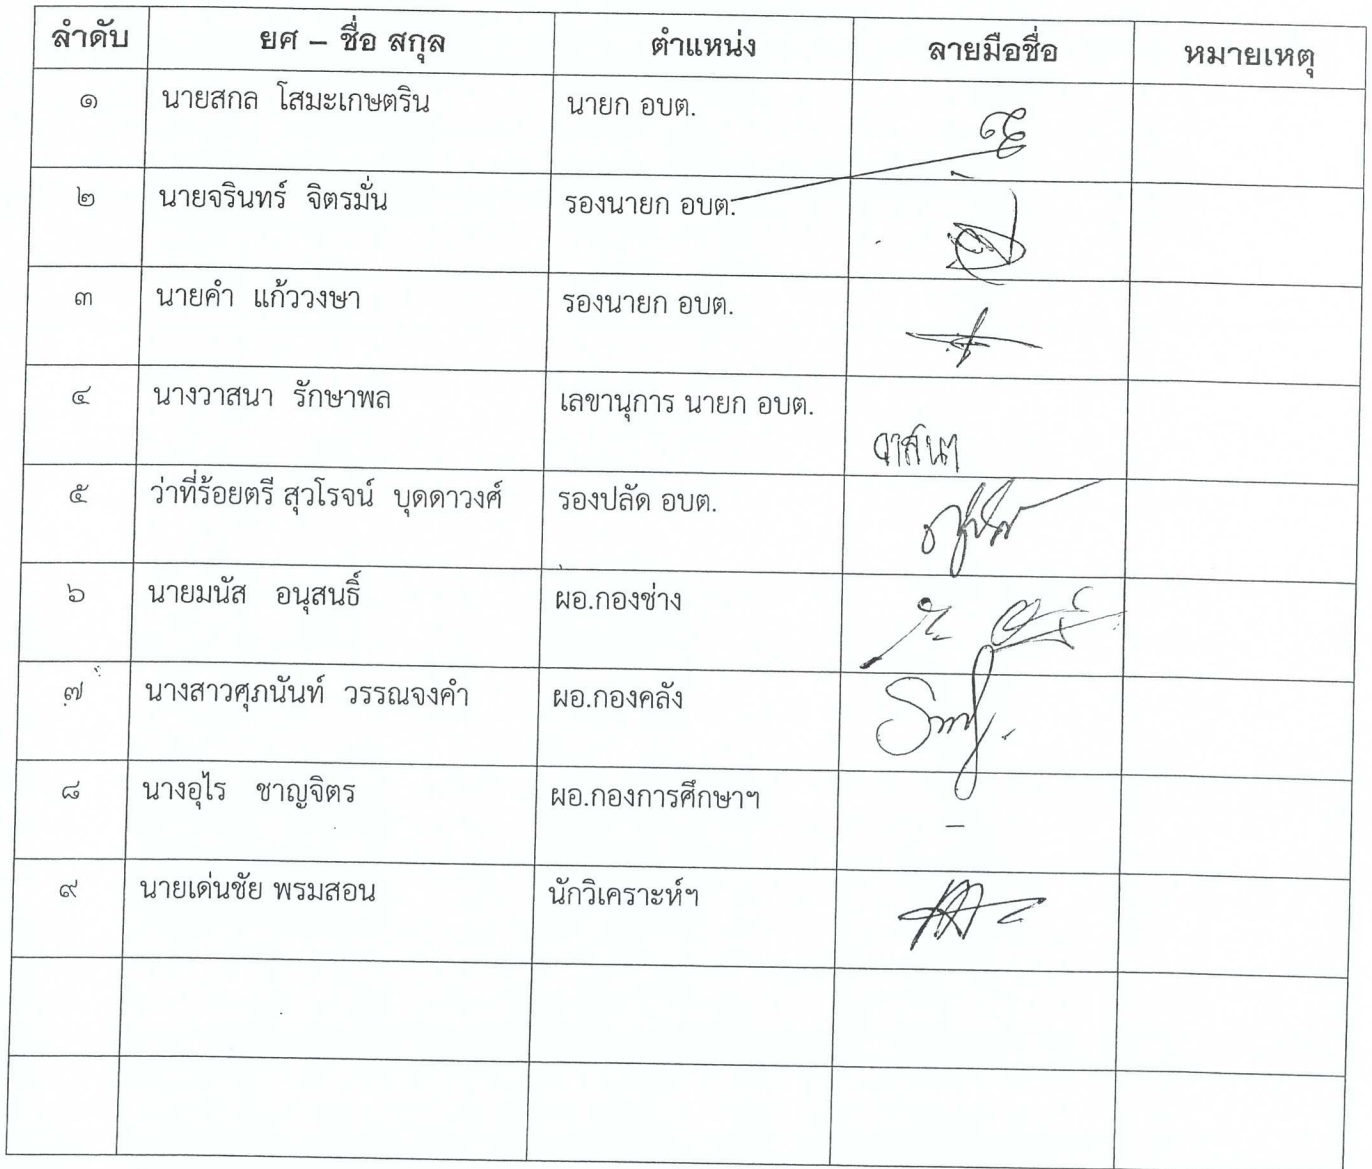 ลำดับ ยศ – ชื่อ สกุล ตำแหน่ง ลายมือชื่อ หมายเหตุ
๑ นายสกล โสมะเกษตริน นายก อบต.
๒ นายจรินทร์ จิตรมั่น รองนายก อบต.
๓ นายคำ แก้ววงษา รองนายก อบต.
๔ นางวาสนา รักษาพล เลขานุการ นายก อบต. วาสนา
๕ ว่าที่ร้อยตรี สุวโรจน์ บุดดาวงศ์ รองปลัด อบต.
๖ นายมนัส อนุสนธิ์ ผอ.กองช่าง
๗ นางสาวศุภนันท์ วรรณจงคำ ผอ.กองคลัง
๘ นางอุไร ชาญจิตร ผอ.กองการศึกษาฯ –
๙ นายเด่นชัย พรมสอน นักวิเคราะห์ฯ